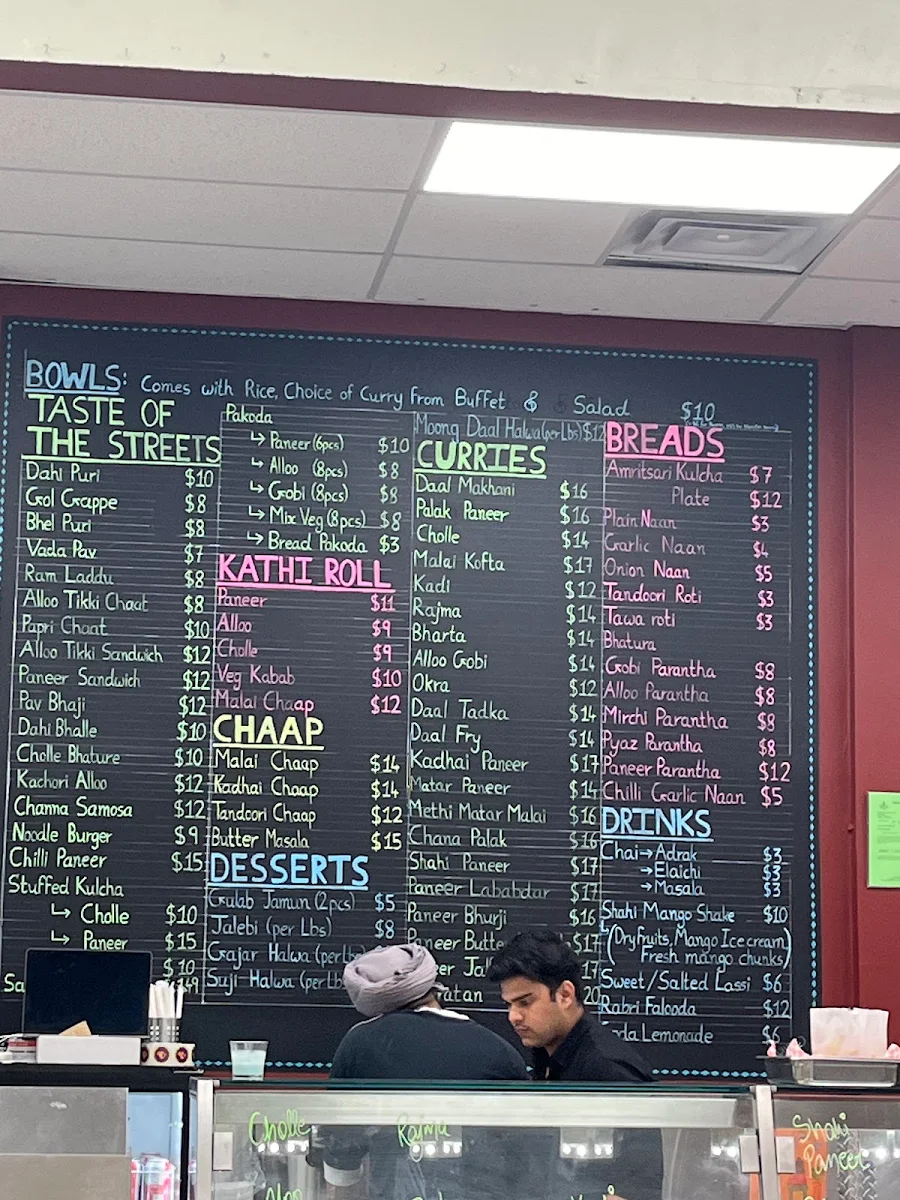 BOWLS: Comes with Rice, Choice of Curry from Buffet & Salad $10
TASTE OF
THE STREETS
Dahi Puri $10
Gol Gappe $8
Bhel Puri $8
Vada Pav $7
Ram Laddu $8
Alloo Tikki Chaat $8
Papri Chaat $10
Alloo Tikki Sandwich $12
Paneer Sandwich $12
Pav Bhaji $12
Dahi Bhalle $10
Cholle Bhature $10
Kachori Alloo $12
Channa Samosa $12
Noodle Burger $9
Chilli Paneer $15
Stuffed Kulcha
↳ Cholle $10
↳ Paneer $15
$10
Sa
Pakoda
↳ Paneer (6pcs) $10
↳ Alloo (8pcs) $8
↳ Gobi (8pcs) $8
↳ Mix Veg (8pcs) $8
↳ Bread Pakoda $3
KATHI ROLL
Paneer $11
Alloo $9
Cholle $9
Veg Kabab $10
Malai Chaap $12
CHAAP
Malai Chaap $14
Kadhai Chaap $14
Tandoori Chaap $12
Butter Masala $15
DESSERTS
Gulab Jamun (2pcs) $5
Jalebi (per Lbs) $8
Gajar Halwa (per Lb
Suji Halwa (per Lb
Moong Daal Halwa (per Lbs) $12
CURRIES
Daal Makhani $16
Palak Paneer $16
Cholle $14
Malai Kofta $17
Kadi $12
Rajma $14
Bharta $14
Alloo Gobi $14
Okra $12
Daal Tadka $14
Daal Fry $14
Kadhai Paneer $17
Matar Paneer $14
Methi Matar Malai $16
Chana Palak $16
Shahi Paneer $17
Paneer Lababdar $17
Paneer Bhurji $16
Paneer Butte $17
eer Ja 17
atan 20
BREADS
Amritsari Kulcha $7
Plate $12
Plain Naan $3
Garlic Naan $4
Onion Naan $5
Tandoori Roti $3
Tawa roti $3
Bhatura
Gobi Parantha $8
Alloo Parantha $8
Mirchi Parantha $8
Pyaz Parantha $8
Paneer Parantha $12
Chilli Garlic Naan $5
DRINKS
Chai → Adrak $3
→ Elaichi $3
→ Masala $3
Shahi Mango Shake $10
(Dryfruits, Mango Ice cream,
Fresh mango chunks)
Sweet/Salted Lassi $6
Rabri Falooda $12
da Lemonade $6
Cholle
Rajma
Shahi
Paneer